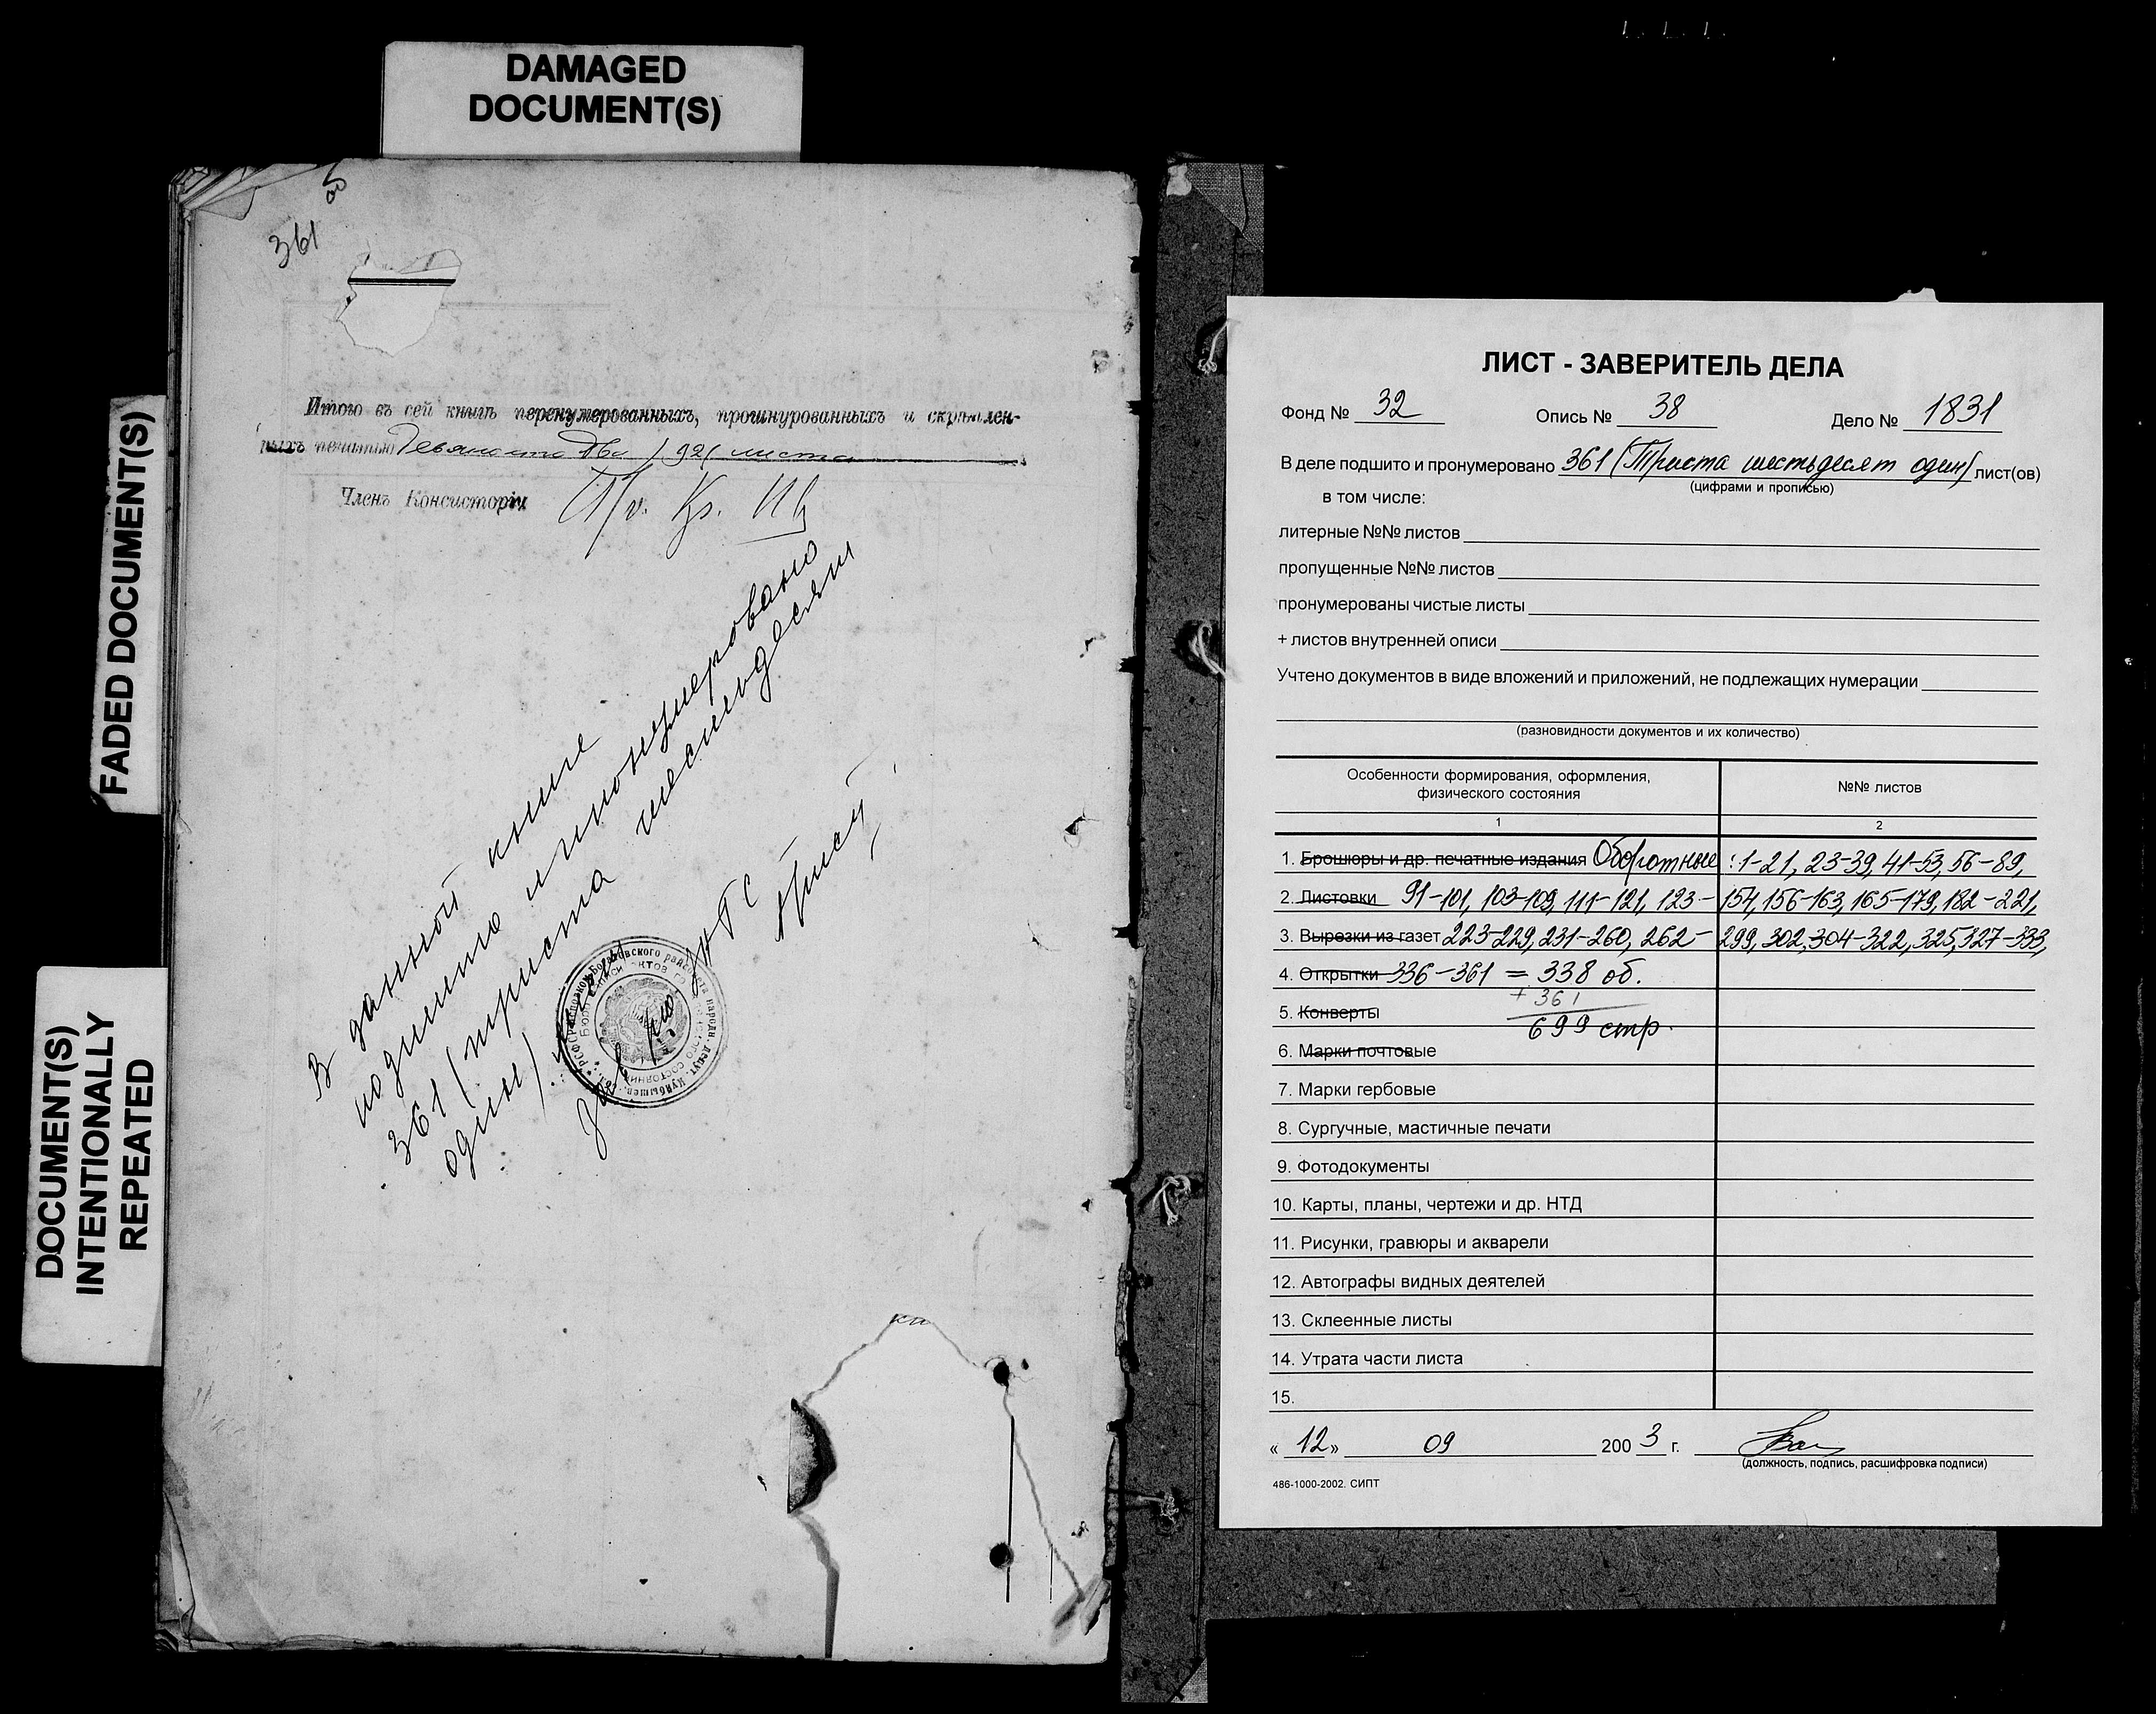 DAMAGED
DOCUMENT(S)
FADED DOCUMENT(S)
DOCUMENT(S)
INTENTIONALLY
REPEATED
361
Итого въ сей книгѣ перенумерованныхъ, прошнурованныхъ и скрѣплен-
ныхъ печатью Девяносто два /92/ листа
Членъ Консисторіи
В данной книге
подшито и пронумеровано
361 (триста шестьдесят
один)
ЛИСТ - ЗАВЕРИТЕЛЬ ДЕЛА
Фонд № 32 Опись № 38 Дело № 1831
В деле подшито и пронумеровано 361 (Триста шестьдесят один) лист(ов)
(цифрами и прописью)
в том числе:
литерные №№ листов
пропущенные №№ листов
пронумерованы чистые листы
+ листов внутренней описи
Учтено документов в виде вложений и приложений, не подлежащих нумерации
(разновидности документов и их количество)
Особенности формирования, оформления, №№ листов
физического состояния
1 2
1. Брошюры и др. печатные издания Оборотные : 1-21, 23-39, 41-53, 56-89,
2. Листовки 91-101, 103-109, 111-121, 123- 154, 156-163, 165-179, 182-221,
3. Вырезки из газет 223-229, 231-260, 262- 299, 302, 304-322, 325, 327-333,
4. Открытки 336-361 = 338 об.
+ 361
5. Конверты
699 стр.
6. Марки почтовые
7. Марки гербовые
8. Сургучные, мастичные печати
9. Фотодокументы
10. Карты, планы, чертежи и др. НТД
11. Рисунки, гравюры и акварели
12. Автографы видных деятелей
13. Склеенные листы
14. Утрата части листа
15.
« 12 » 09 2003 г.
(должность, подпись, расшифровка подписи)
486-1000-2002. СИПТ